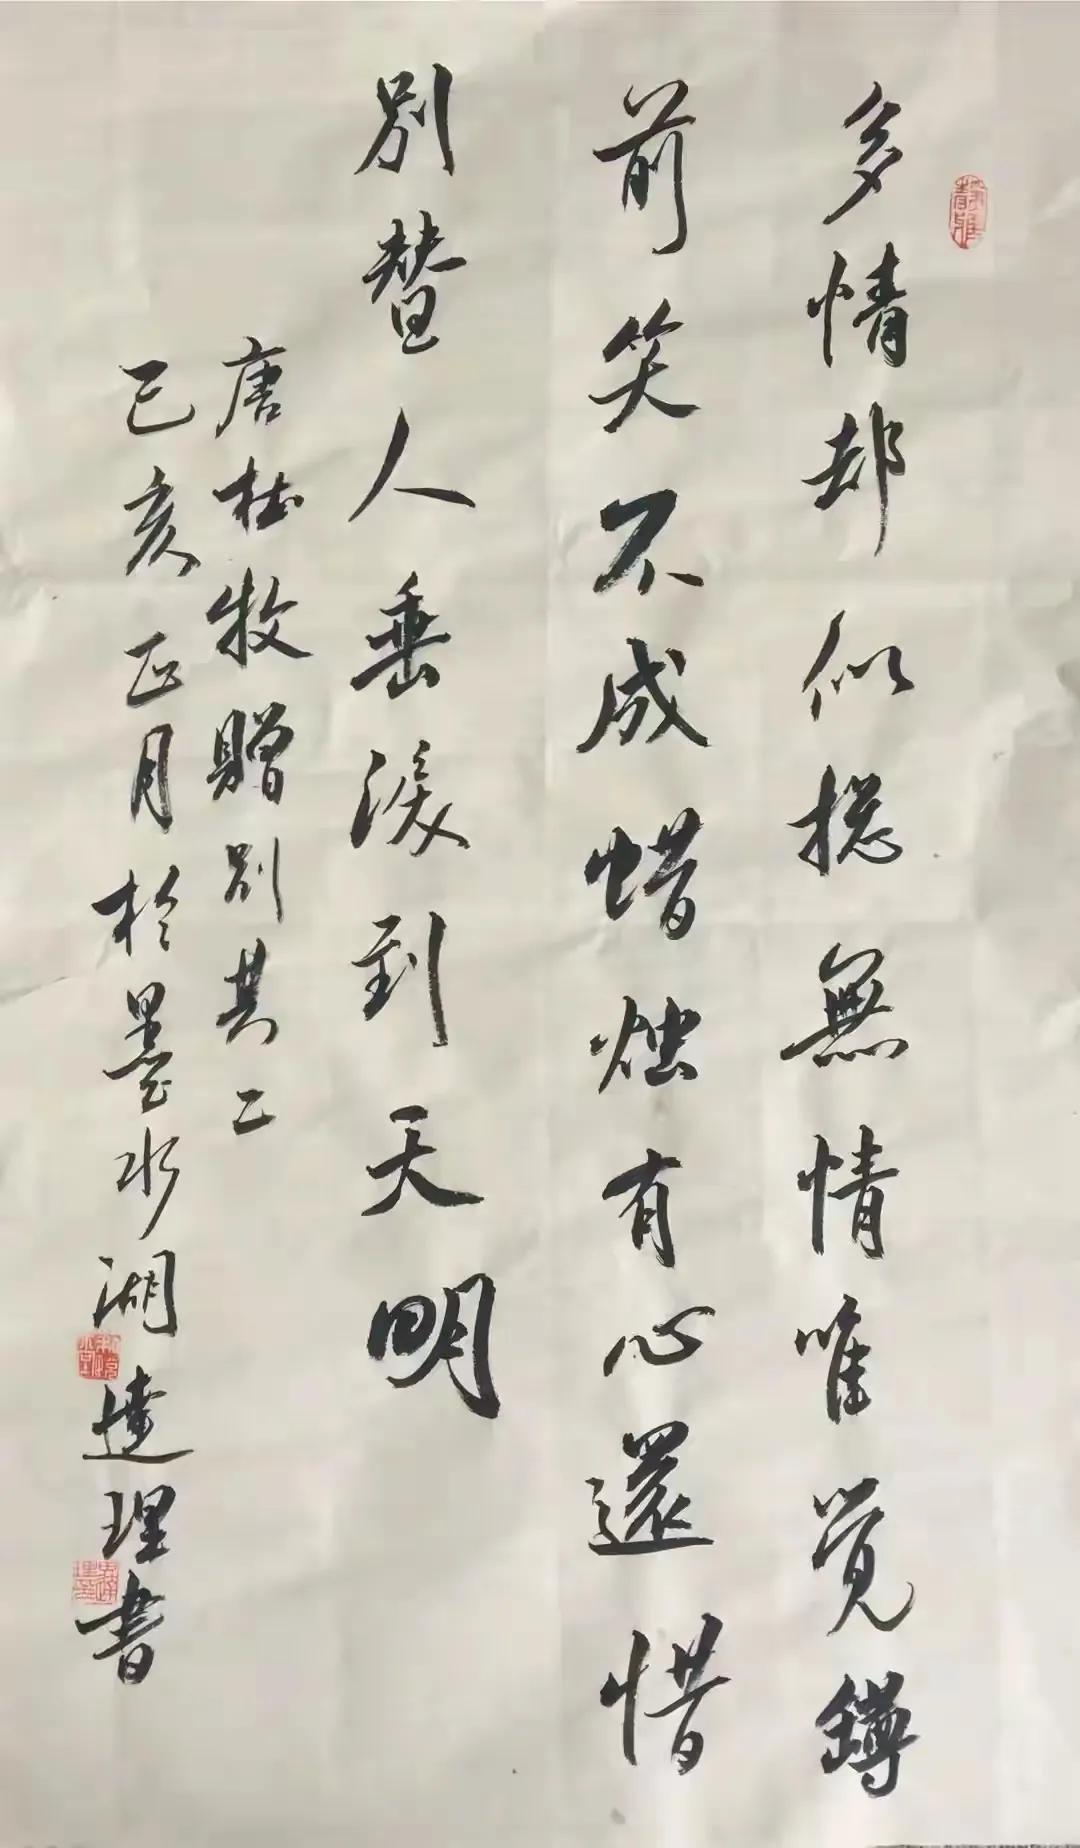 多情却似揔無情唯覚鐏
前笑不成蜡烛有心還惜
別替人垂淚到天明
唐杜牧贈別其二
己亥正月於墨水湖達理書